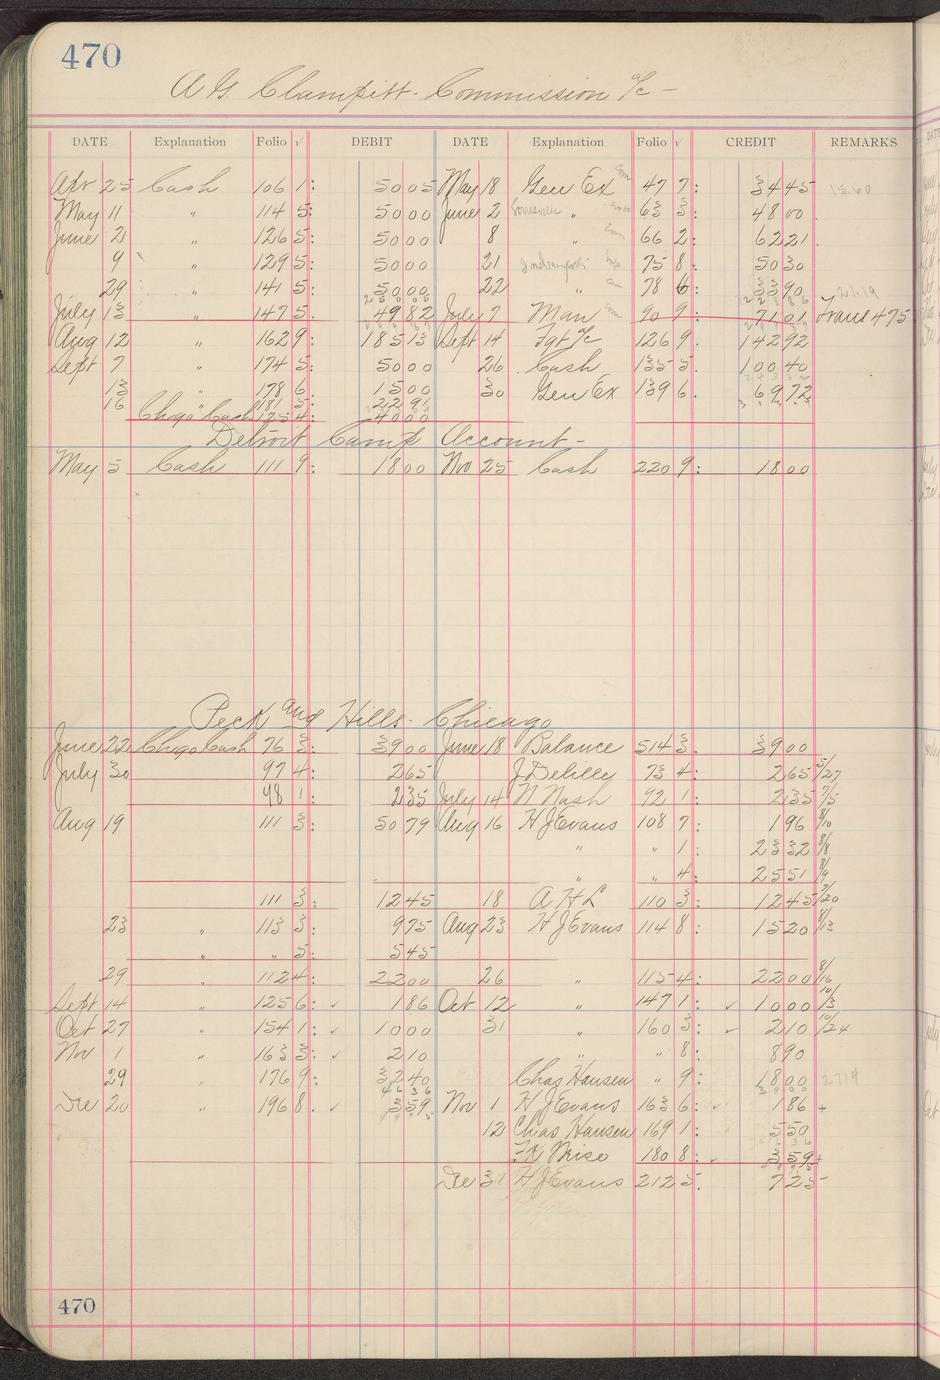 470
A G Clampitt - Commission a/c -
DATE Explanation Folio √ DEBIT DATE Explanation Folio √ CREDIT REMARKS
Apr 25 Cash 106 1: 5005 May 18 Gen Ex Com 47 7: 3445 15.60
May 11 " 114 5: 5000 June 2 Louisville " 63 3: 4800
June 2 " 126 5: 5000 8 " Com 66 2: 6221
9 " 129 5: 5000 21 Indianapolis 75 8: 5030
29 " 141 5: 5000 22 " Com 78 6: 3390 21.19
July 13 " 147 5. 4982 July 7 Man Com 90 9: 7101 Trans 475
Aug 12 " 162 9: 18513 Sept 14 Fgt a/c 126 9. 14292
Sept 7 " 174 5: 5000 26 Cash 135 5. 10040
13 " 178 6 1500 30 Gen Ex 139 6. 6972
16 " 181 5: 2291
Chgo Cash 125 4: 4000
Detroit Camp Account -
May 5 Cash 111 9: 1800 Nov 25 Cash 220 9: 1800
Peck and Hills - Chicago
June 22 Chgo Cash 76 3: 3900 June 18 Balance 514 3. 3900
July 30 97 4: 265 J Delille 73 4: 265 5/27
98 1: 235 July 14 N Nash 92 1: 235 7/5
Aug 19 111 3: 5079 Aug 16 H J Evans 108 7: 196 8/10
" " 1: 2332 8/8
" " 4: 2551 8/9
111 3: 1245 18 A H L 110 3: 1245 7/20
23 " 113 3: 975 Aug 23 H J Evans 114 8: 1520 8/13
" " 5: 545
29 " 112 4: 2200 26 " 115 4: 2200 8/16
Sept 14 " 125 6: ✓ 186 Oct 12 " 147 1: ✓ 1000 10/3
Oct 27 " 154 1: ✓ 1000 31 " 160 3: ✓ 210 10/24
Nov 1 " 163 3: ✓ 210 " " 8: 890
29 " 176 9: 3240 Chas Hansen " 9: 1800 2714
Dec 20 " 196 8. ✓ 359 Nov 1 H J Evans 163 6: ✓ 186 +
12 Chas Hansen 169 1: 550
180 8: 359 +
Dec 31 H J Evans 212 5. 725
470